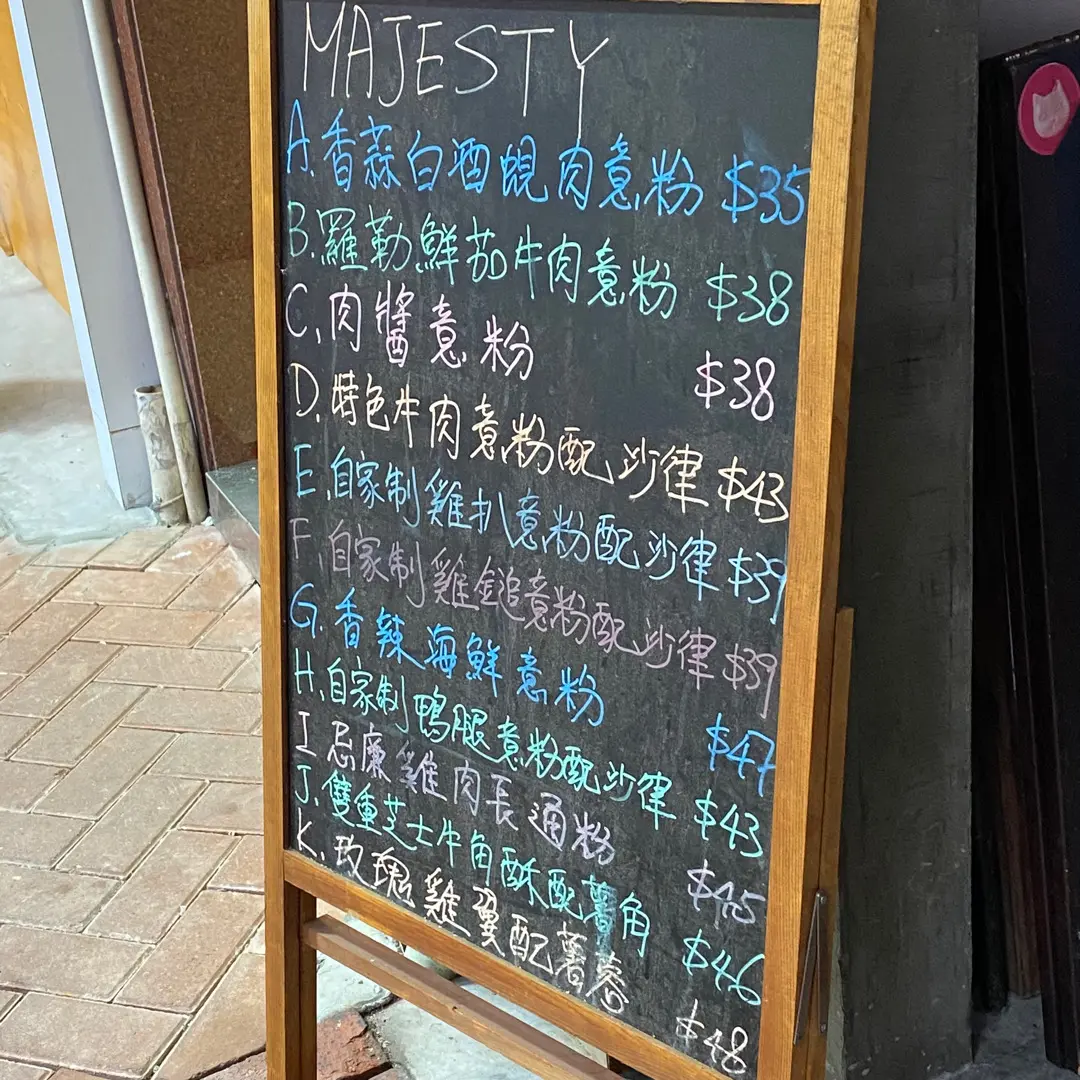 MAJESTY
A. 香蒜白酒蜆肉意粉 $35
B. 羅勒鮮茄牛肉意粉 $38
C. 肉醬意粉 $38
D. 特色牛肉意粉配沙律 $43
E. 自家制雞扒意粉配沙律 $39
F. 自家制雞鎚意粉配沙律 $39
G. 香辣海鮮意粉 $47
H. 自家制鴨腿意粉配沙律 $43
I. 忌廉雞肉長通粉 $45
J. 雙重芝士牛角酥配薯角 $46
K. 玫瑰雞翼配薯蓉 $48